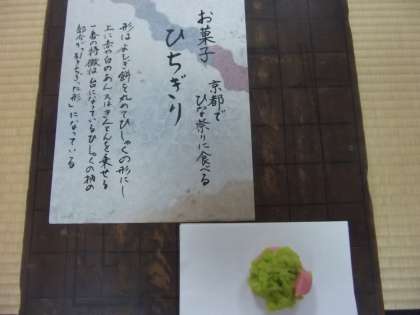 お菓子
京都で
ひな祭りに食べる
ひちぎり
形はよもぎ餅を丸めてひしゃくの形にし
上に赤や白のあん又はきんとんを乗せる
一番の特徴は台になっているひしゃくの柄の
部分が「引きちぎった形」になっている